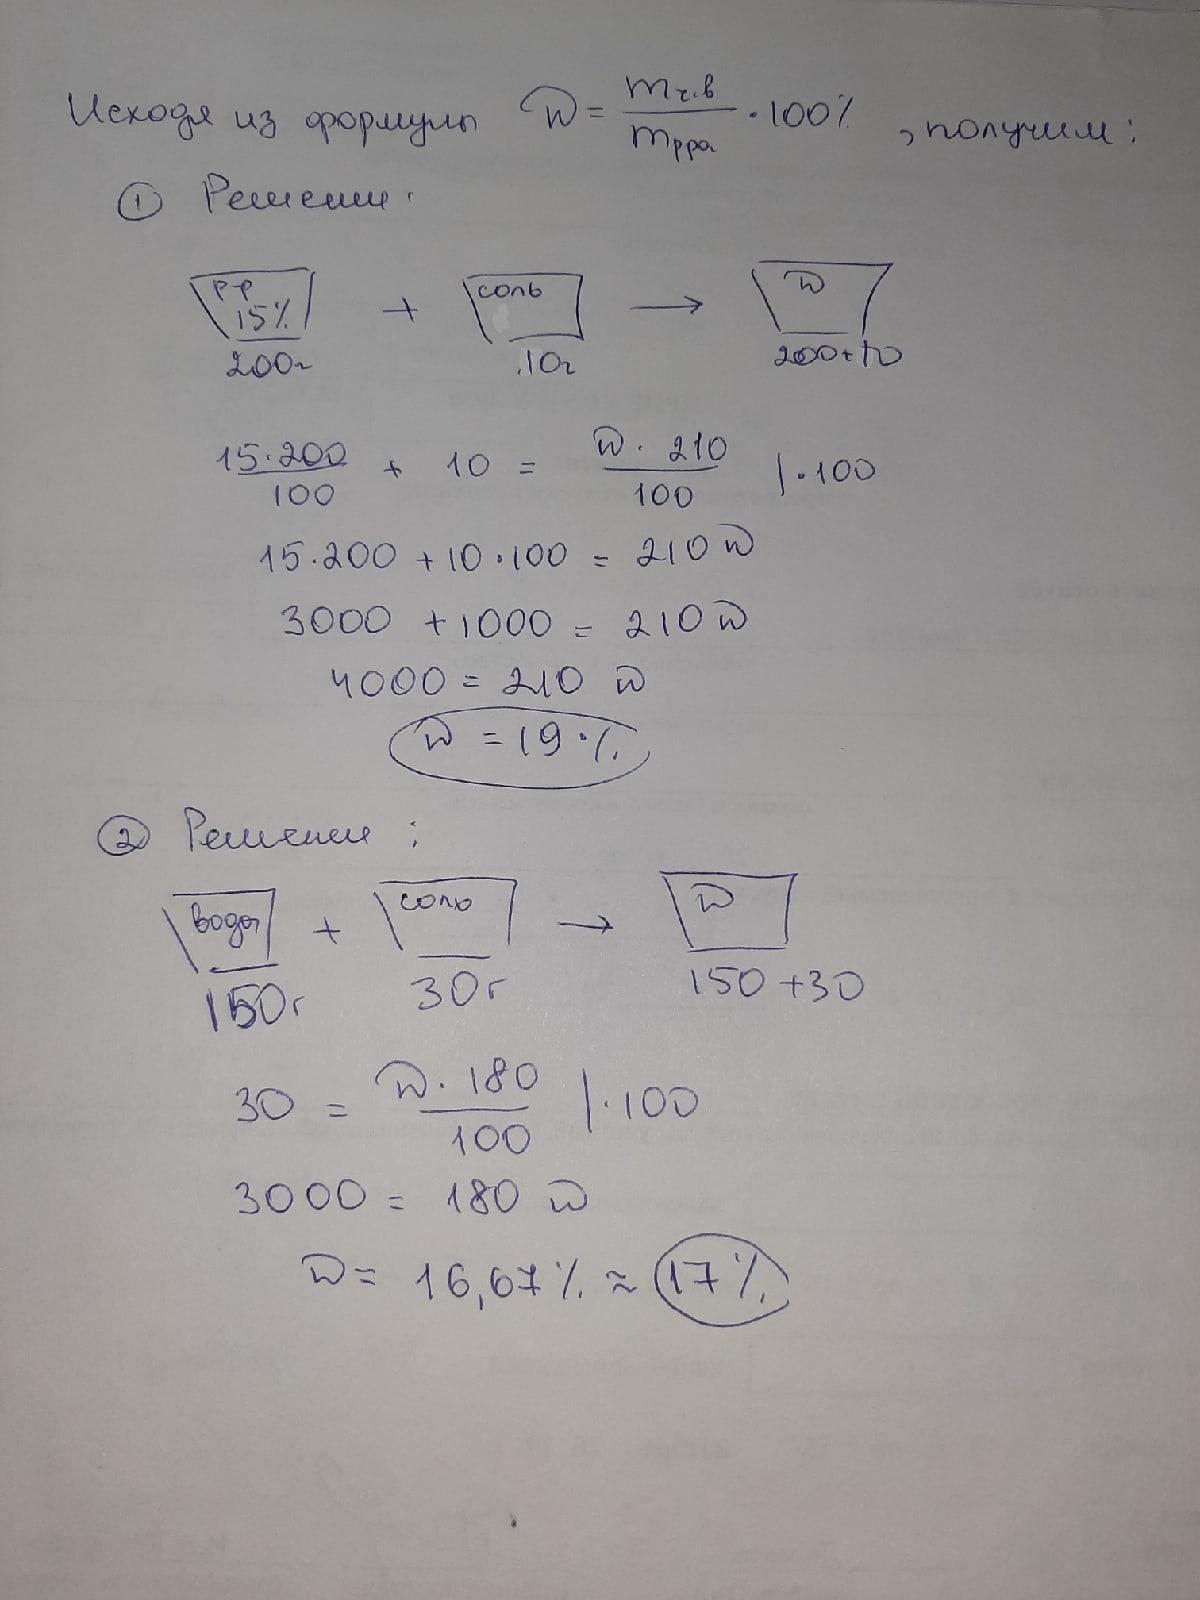 Исходя из формулы W = mч.в / mрра · 100% , получим:
① Решение:
рр 15% + соль → W
200г 10г 200+10
15·200/100 + 10 = W·210/100 |·100
15·200 + 10·100 = 210 W
3000 + 1000 = 210 W
4000 = 210 W
W = 19%
② Решение:
воды + соль → W
150г 30г 150+30
30 = W·180/100 |·100
3000 = 180 W
W = 16,67% ≈ 17%